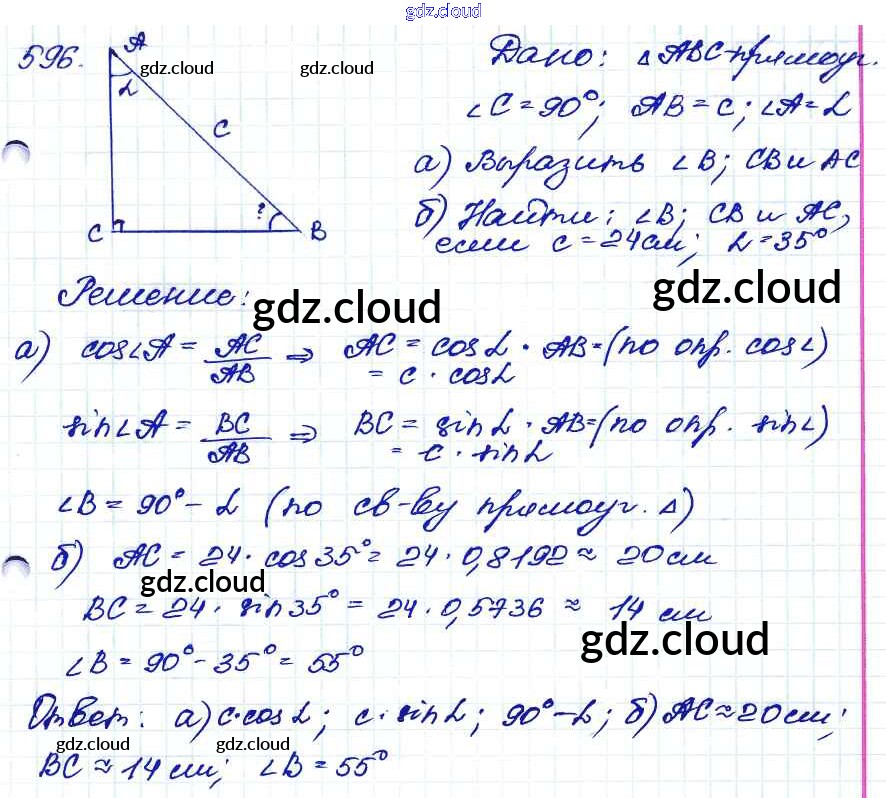 gdz.cloud
596.
A
α
c
C
?
B
gdz.cloud
gdz.cloud
Дано: △ABC-прямоуг.
∠C=90°; AB=c; ∠A=α
а) Выразить ∠B; CB и AC
б) Найти: ∠B; CB и AC,
если c=24см; α=35°
Решение:
gdz.cloud
gdz.cloud
а) cos∠A = AC/AB ⇒ AC = cosα · AB=(по опр. cos∠)
= c · cosα
sin∠A = BC/AB ⇒ BC = sinα · AB=(по опр. sin∠)
= c · sinα
∠B = 90° - α (по св-ву прямоуг. △)
б) AC = 24 · cos35° = 24 · 0,8192 ≈ 20см
gdz.cloud
BC = 24 · sin35° = 24 · 0,5736 ≈ 14 см
gdz.cloud
∠B = 90° - 35° = 55°
Ответ: а) c·cosα; c·sinα; 90°-α; б) AC≈20см;
gdz.cloud
gdz.cloud
gdz.cloud
gdz.cloud
BC ≈ 14 см; ∠B = 55°